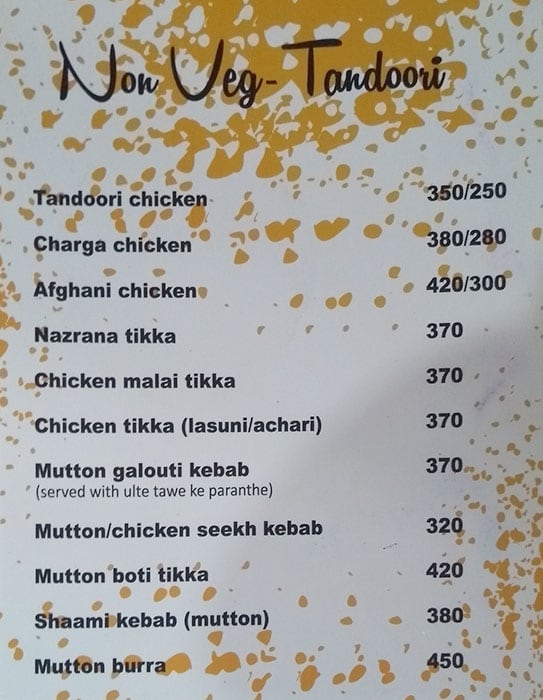 Non Veg- Tandoori
Tandoori chicken 350/250
Charga chicken 380/280
Afghani chicken 420/300
Nazrana tikka 370
Chicken malai tikka 370
Chicken tikka (lasuni/achari) 370
Mutton galouti kebab 370
(served with ulte tawe ke paranthe)
Mutton/chicken seekh kebab 320
Mutton boti tikka 420
Shaami kebab (mutton) 380
Mutton burra 450